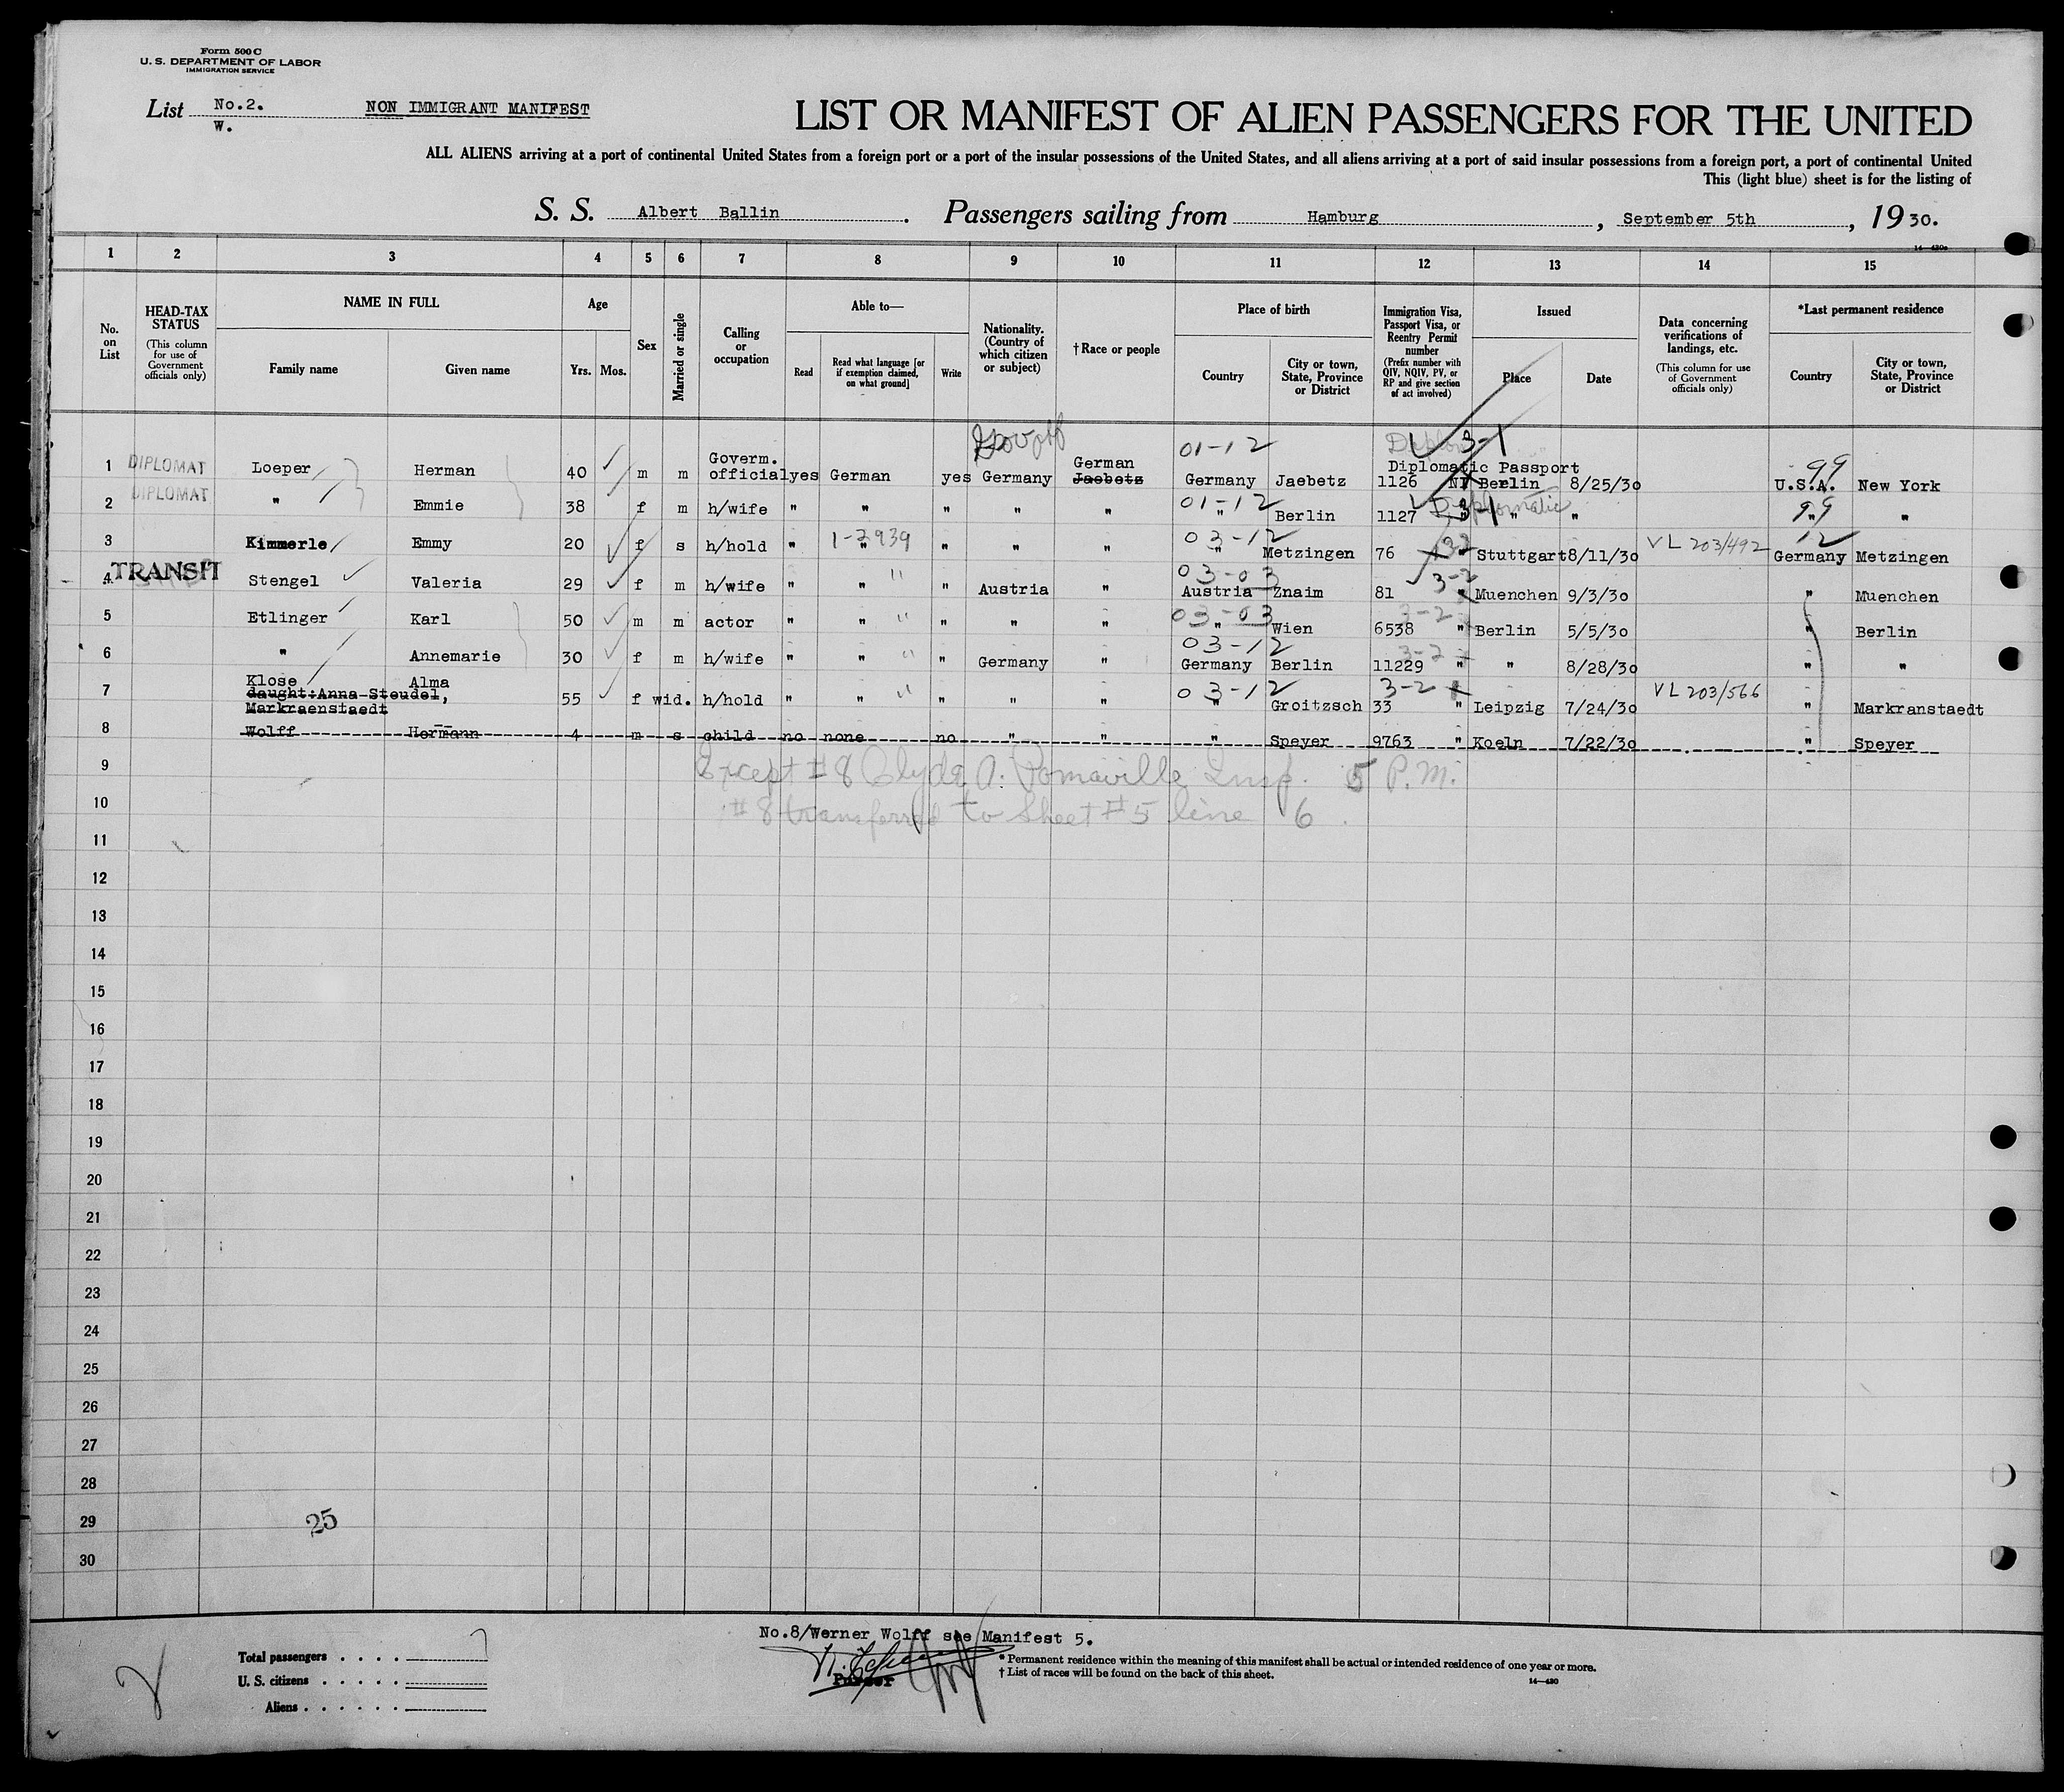 Form 500 C
U. S. DEPARTMENT OF LABOR
IMMIGRATION SERVICE
List No.2. NON IMMIGRANT MANIFEST LIST OR MANIFEST OF ALIEN PASSENGERS FOR THE UNITED
W.
ALL ALIENS arriving at a port of continental United States from a foreign port or a port of the insular possessions of the United States, and all aliens arriving at a port of said insular possessions from a foreign port, a port of continental United
This (light blue) sheet is for the listing of
S. S. Albert Ballin. Passengers sailing from Hamburg, September 5th, 1930.
14—430a
1 2 3 4 5 6 7 8 9 10 11 12 13 14 15
No. on List
HEAD-TAX STATUS
(This column for use of Government officials only)
NAME IN FULL
Family name Given name
Age
Yrs. Mos.
Sex
Married or single
Calling or occupation
Able to—
Read Read what language [or if exemption claimed, on what ground] Write
Nationality. (Country of which citizen or subject)
†Race or people
Place of birth
Country City or town, State, Province or District
Immigration Visa, Passport Visa, or Reentry Permit number
(Prefix number with QIV, NQIV, PV, or RP and give section of act involved)
Issued
Place Date
Data concerning verifications of landings, etc.
(This column for use of Government officials only)
*Last permanent residence
Country City or town, State, Province or District
01-12 3-1
Governm. German Diplomatic Passport 99
1 DIPLOMAT Loeper Herman 40 m m official yes German yes Germany Jaebetz Germany Jaebetz 1126 Berlin 8/25/30 U.S.A. New York
01-12 3-1 Diplomatic 99
2 DIPLOMAT " Emmie 38 f m h/wife " " " " " " Berlin 1127 " " " "
1-2939 03-12 32 VL 203/492 12
3 Kimmerle Emmy 20 f s h/hold " " " " " " Metzingen 76 Stuttgart 8/11/30 Germany Metzingen
03-03 3-2
4 TRANSIT Stengel Valeria 29 f m h/wife " " " Austria " Austria Znaim 81 " Muenchen 9/3/30 " Muenchen
03-03 3-2
5 Etlinger Karl 50 m m actor " " " " " " Wien 6538 " Berlin 5/5/30 " Berlin
03-12 3-2
6 " Annemarie 30 f m h/wife " " " Germany " Germany Berlin 11229 " " 8/28/30 " "
Klose Alma 03-12 3-2 VL 203/566
7 daught:Anna-Steudel, 55 f wid. h/hold " " " " " " Groitzsch 33 " Leipzig 7/24/30 " Markranstaedt
Markraenstaedt
8 Wolff Hermann 4 m s child no none no " " " Speyer 9763 " Koeln 7/22/30 " Speyer
9 Except #8 Clyde A. Pomaville Insp. 5 P.M.
10 #8 transferred to Sheet #5 line 6
11
12
13
14
15
16
17
18
19
20
21
22
23
24
25
26
27
28
29 25
30
No.8/Werner Wolff see Manifest 5.
Total passengers . . . . 7
U. S. citizens . . . . .
Aliens . . . . . .
Purser
* Permanent residence within the meaning of this manifest shall be actual or intended residence of one year or more.
† List of races will be found on the back of this sheet.
14—430